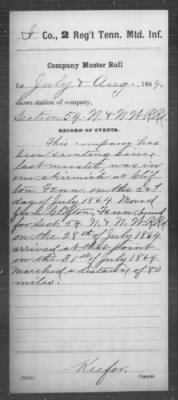 I Co., 2 Reg't Tenn. Mtd. Inf.
Company Muster Roll
for July & Aug., 1864,
shows station of company,
Section 59. N. & N. W. R.R.
RECORD OF EVENTS.
This company has
been scouting since
last muster, was in
one skirmish at Clif-
ton Tenn. on the 22d
day of July 1864. Moved
from Clifton, Tenn.
for Sec. 59 N. & N. W. R.R.
on the 28th of July 1864
arrived at that point
on the 31st of July 1864
marched a distance of 80
miles.
Keefer.
Copyist.